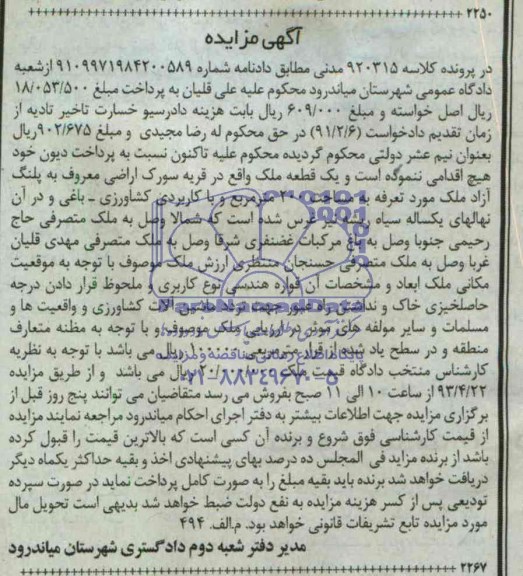 ۲۲۵۰
آگهی مزایده
در پرونده کلاسه ۹۲۰۳۱۵ مدنی مطابق دادنامه شماره ۹۱۰۹۹۷۱۹۸۴۲۰۰۵۸۹ ازشعبه
دادگاه عمومی شهرستان میاندرود محکوم علیه علی قلیان به پرداخت مبلغ ۱۸/۰۵۳/۵۰۰
ریال اصل خواسته و مبلغ ۶۰۹/۰۰۰ ریال بابت هزینه دادرسیو خسارت تاخیر تادیه از
زمان تقدیم دادخواست (۹۱/۲/۶) در حق محکوم له رضا مجیدی و مبلغ ۹۰۲/۶۷۵ریال
بعنوان نیم عشر دولتی محکوم گردیده محکوم علیه تاکنون نسبت به پرداخت دیون خود
هیچ اقدامی ننموگه است و یک قطعه ملک واقع در قریه سورک اراضی معروف به پلنگ
آزاد ملک مورد تعرفه به مساحت مترمربع و با کاربردی کشاورزی ـ باغی و در آن
نهالهای یکساله سیاه ریشه نیز غرس شده است که شمالا وصل به ملک متصرفی حاج
رحیمی جنوبا وصل به باغ مرکبات غضنفری شرقا وصل به ملک متصرفی مهدی قلیان
غربا وصل به ملک متصرفی حسنجان منتظری ارزش ملک موصوف با توجه به موقعیت
مکانی ملک ابعاد و مشخصات آن قواره هندسی نوع کاربری و ملحوظ قرار دادن درجه
حاصلخیزی خاک و نداشتن راه عبور جهت تردد ماشین آلات کشاورزی و واقعیت ها و
مسلمات و سایر مولفه های موثر در ارزیابی ملک موصوف و با توجه به مظنه متعارف
منطقه و در سطح یاد شده از قرار مترمربعی ریال می باشد با توجه به نظریه
کارشناس منتخب دادگاه قیمت ملک ریال می باشد و از طریق مزایده
۹۳/۴/۲۲ از ساعت ۱۰ الی ۱۱ صبح بفروش می رسد متقاضیان می توانند پنج روز قبل از
برگزاری مزایده جهت اطلاعات بیشتر به دفتر اجرای احکام میاندرود مراجعه نمایند مزایده
از قیمت کارشناسی فوق شروع و برنده آن کسی است که بالاترین قیمت را قبول کرده
باشد از برنده مزاید فی المجلس ده درصد بهای پیشنهادی اخذ و بقیه حداکثر یکماه دیگر
دریافت خواهد شد برنده باید بقیه مبلغ را به صورت کامل پرداخت نماید در صورت سپرده
تودیعی پس از کسر هزینه مزایده به نفع دولت ضبط خواهد شد بدیهی است تحویل مال
مورد مزایده تابع تشریفات قانونی خواهد بود. م.الف. ۴۹۴
مدیر دفتر شعبه دوم دادگستری شهرستان میاندرود
۲۲۶۷
ParsNamadData
۰۲۱-۸۸۳۴۹۶۷۰-۵